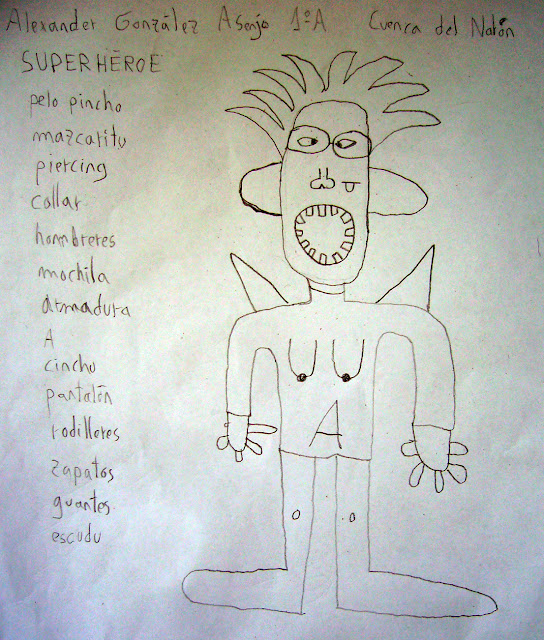 Alexander González Asenjo 1ºA Cuenca del Nalón
SUPERHÉROE
pelo pincho
mazcaritu
piercing
collar
hombreres
mochila
armadura
A
cincho
pantalón
rodilleres
zapatos
guantes
escudu
A